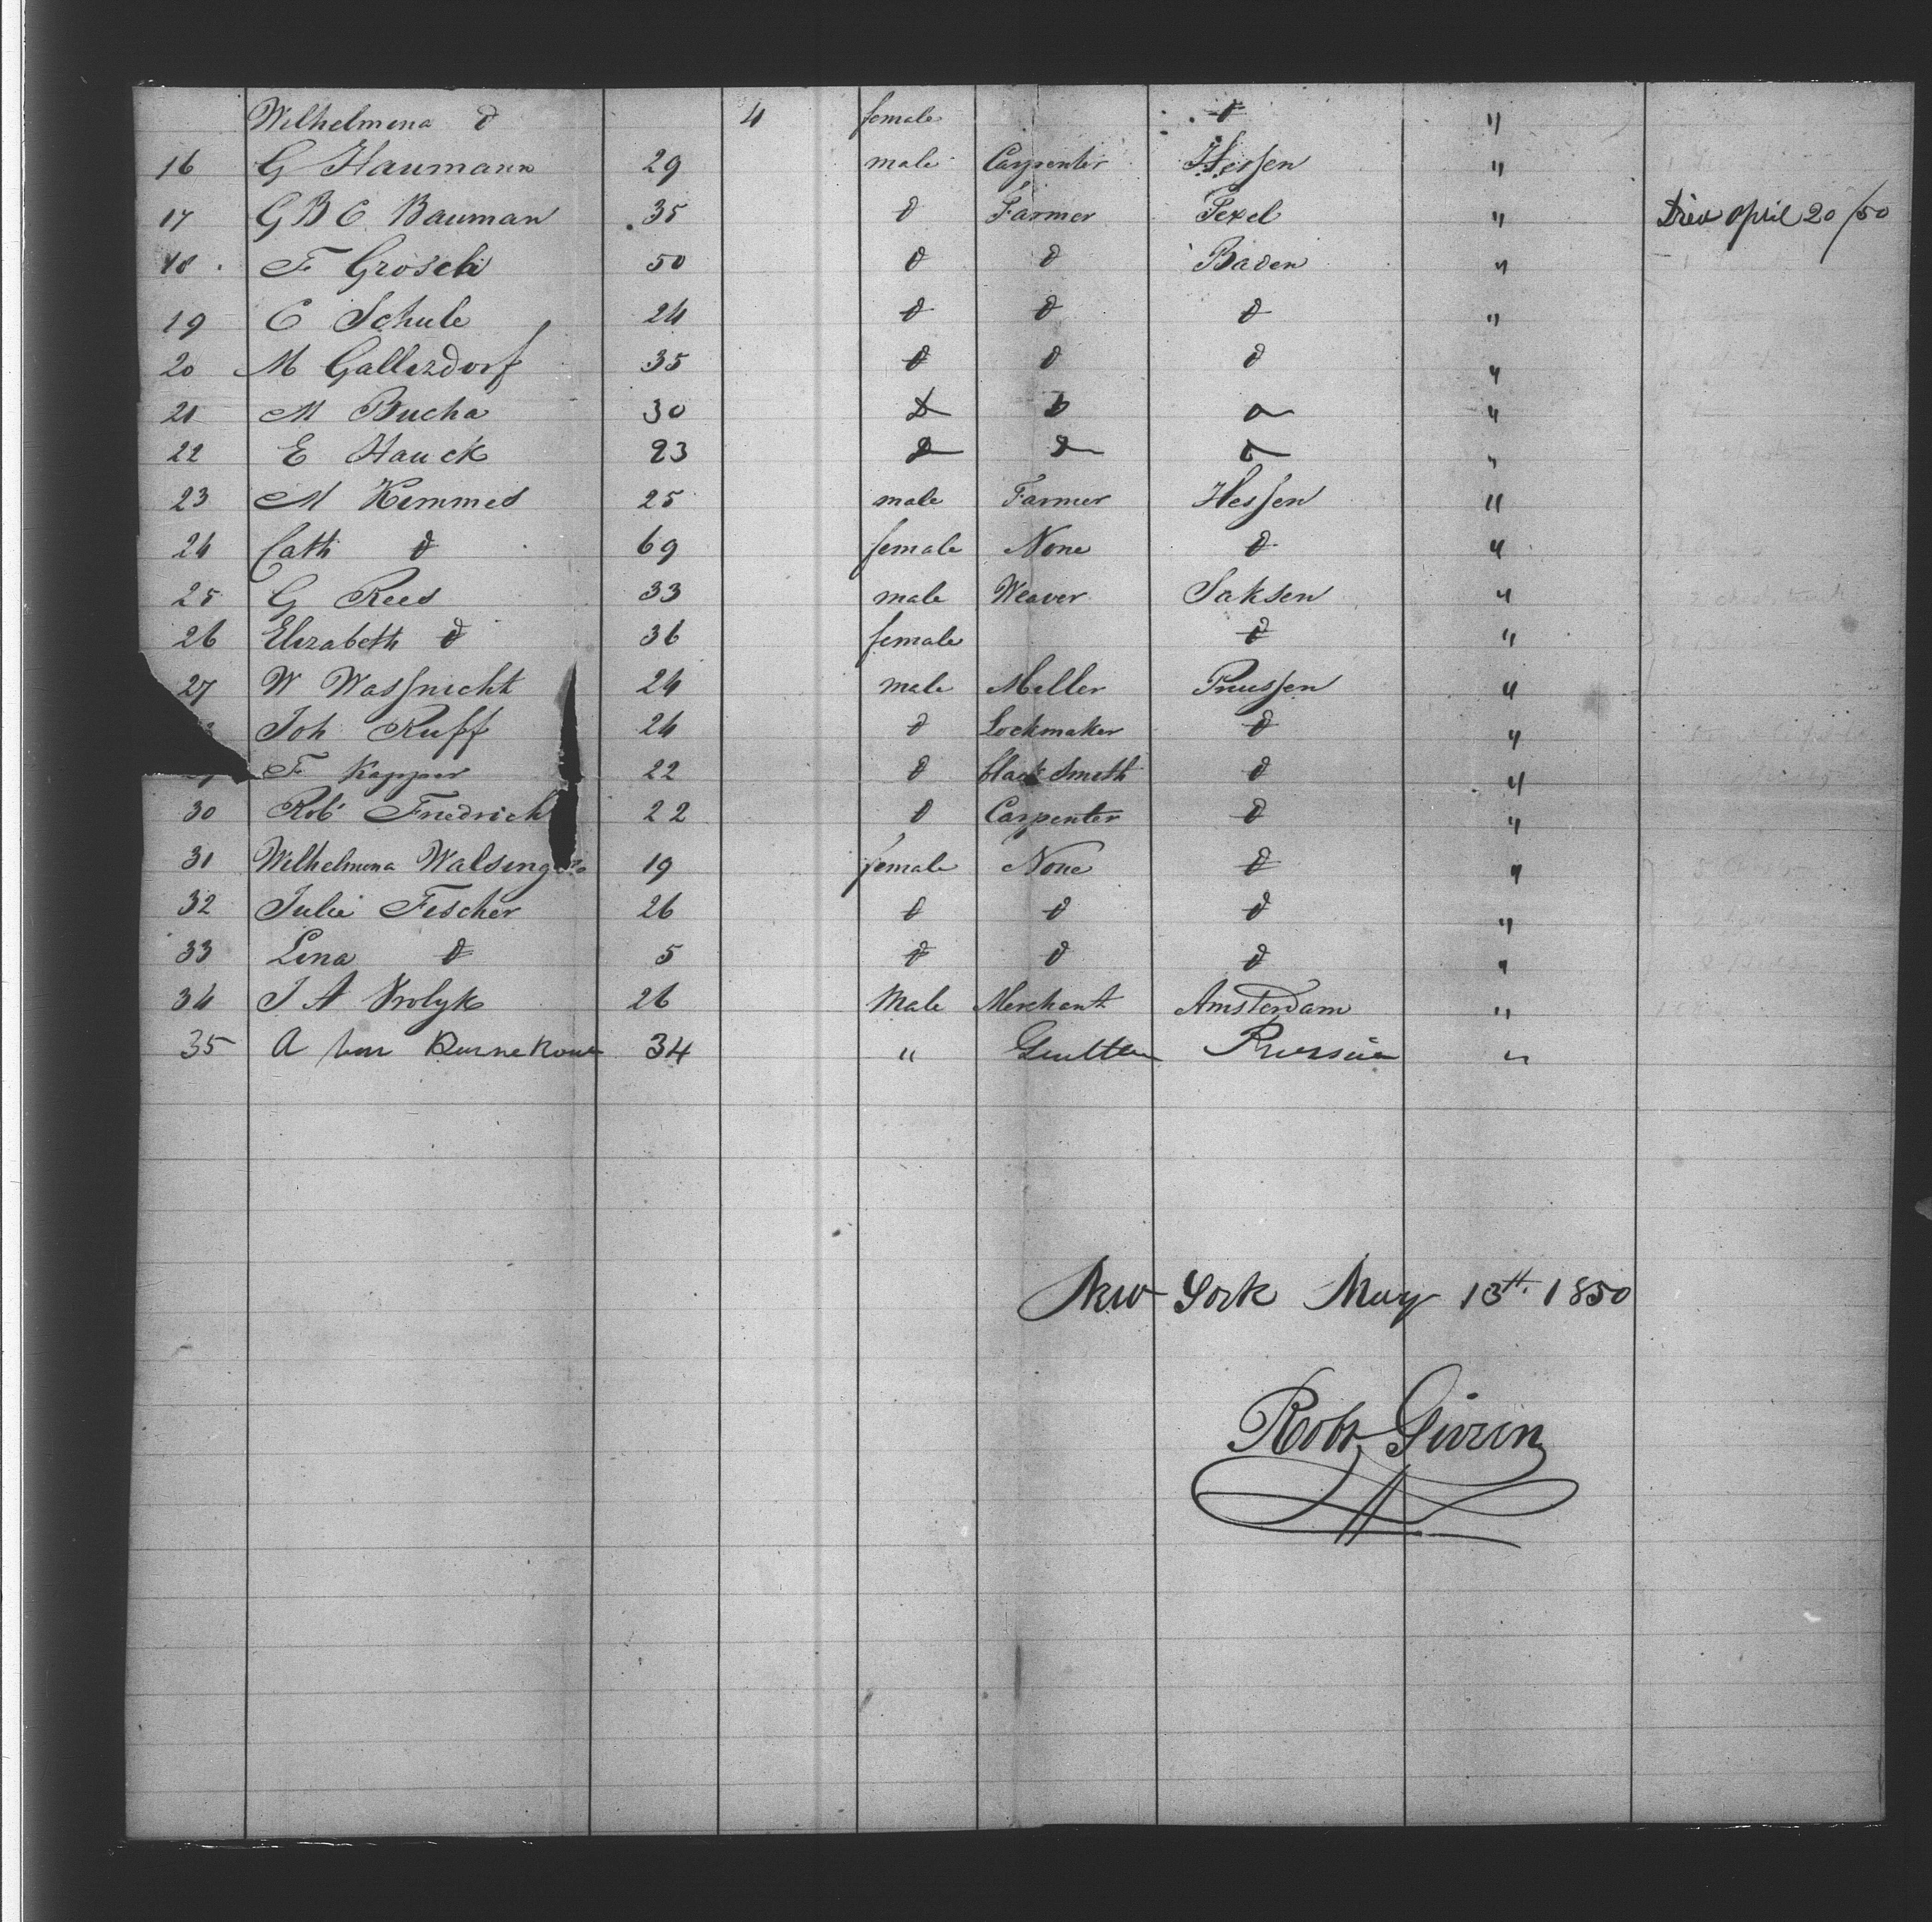 Wilhelmina d 4 female d "
16 G Haumann 29 male Carpenter Hessen "
17 G B C Bauman 35 d Farmer Texel " Died April 20/50
18 F Grosch 50 d d Baden "
19 C Schule 24 d d d "
20 M Gallezdorf 35 d d d "
21 M Bucha 30 d d d "
22 E Hauck 23 d d d "
23 M Kemmed 25 male Farmer Hessen "
24 Cath d 69 female None d "
25 G Rees 33 male Weaver Saksen "
26 Elizabeth d 36 female d "
27 W Wassnicht 24 male Miller Pruussen "
Joh Ruff 24 d Lockmaker d "
F Kapper 22 d black Smith d "
30 Rob Friedrich 22 d Carpenter d "
31 Wilhelmina Walsing 19 female None d "
32 Julie Fischer 26 d d d "
33 Lina d 5 d d d "
34 J A Vrolyk 26 Male Merchant Amsterdam "
35 A 34 " Prussia "
New York May 13th 1850
Robt Givrin